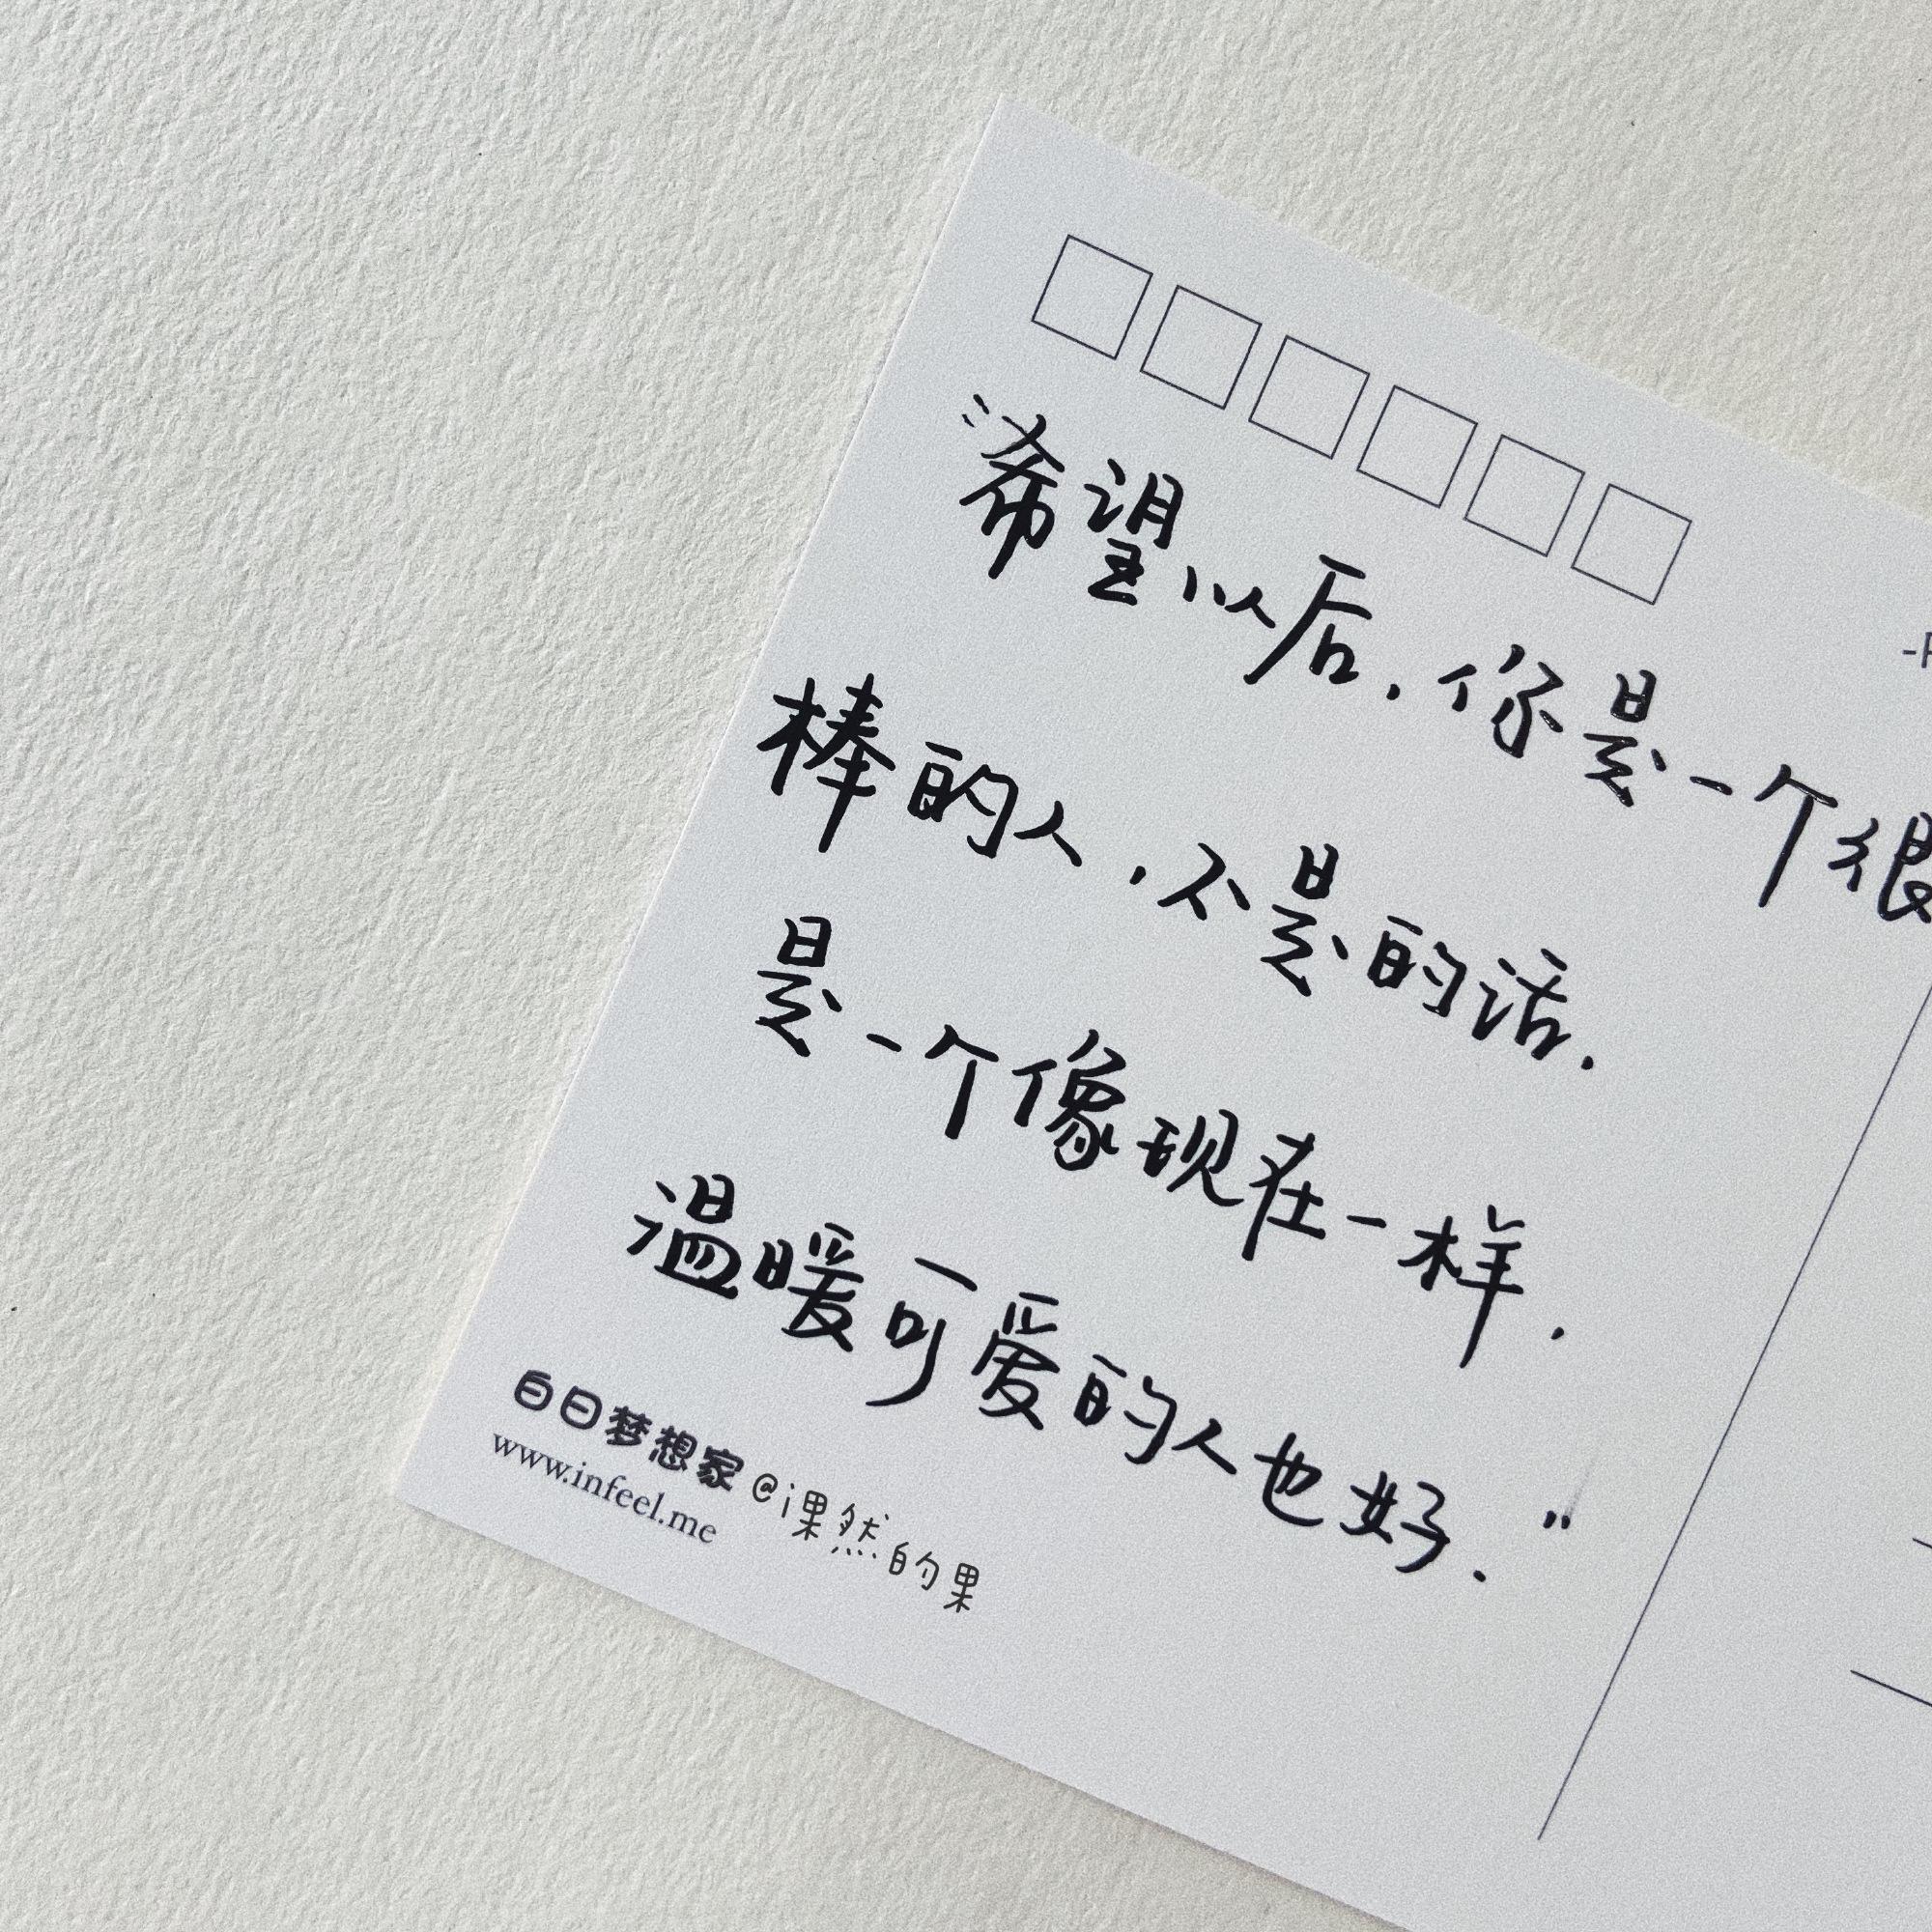 “希望以后.你是一个很
棒的人.不是的话.
是一个像现在一样.
温暖可爱的人也好.”
白日梦想家@i果然的果
www.infeel.me